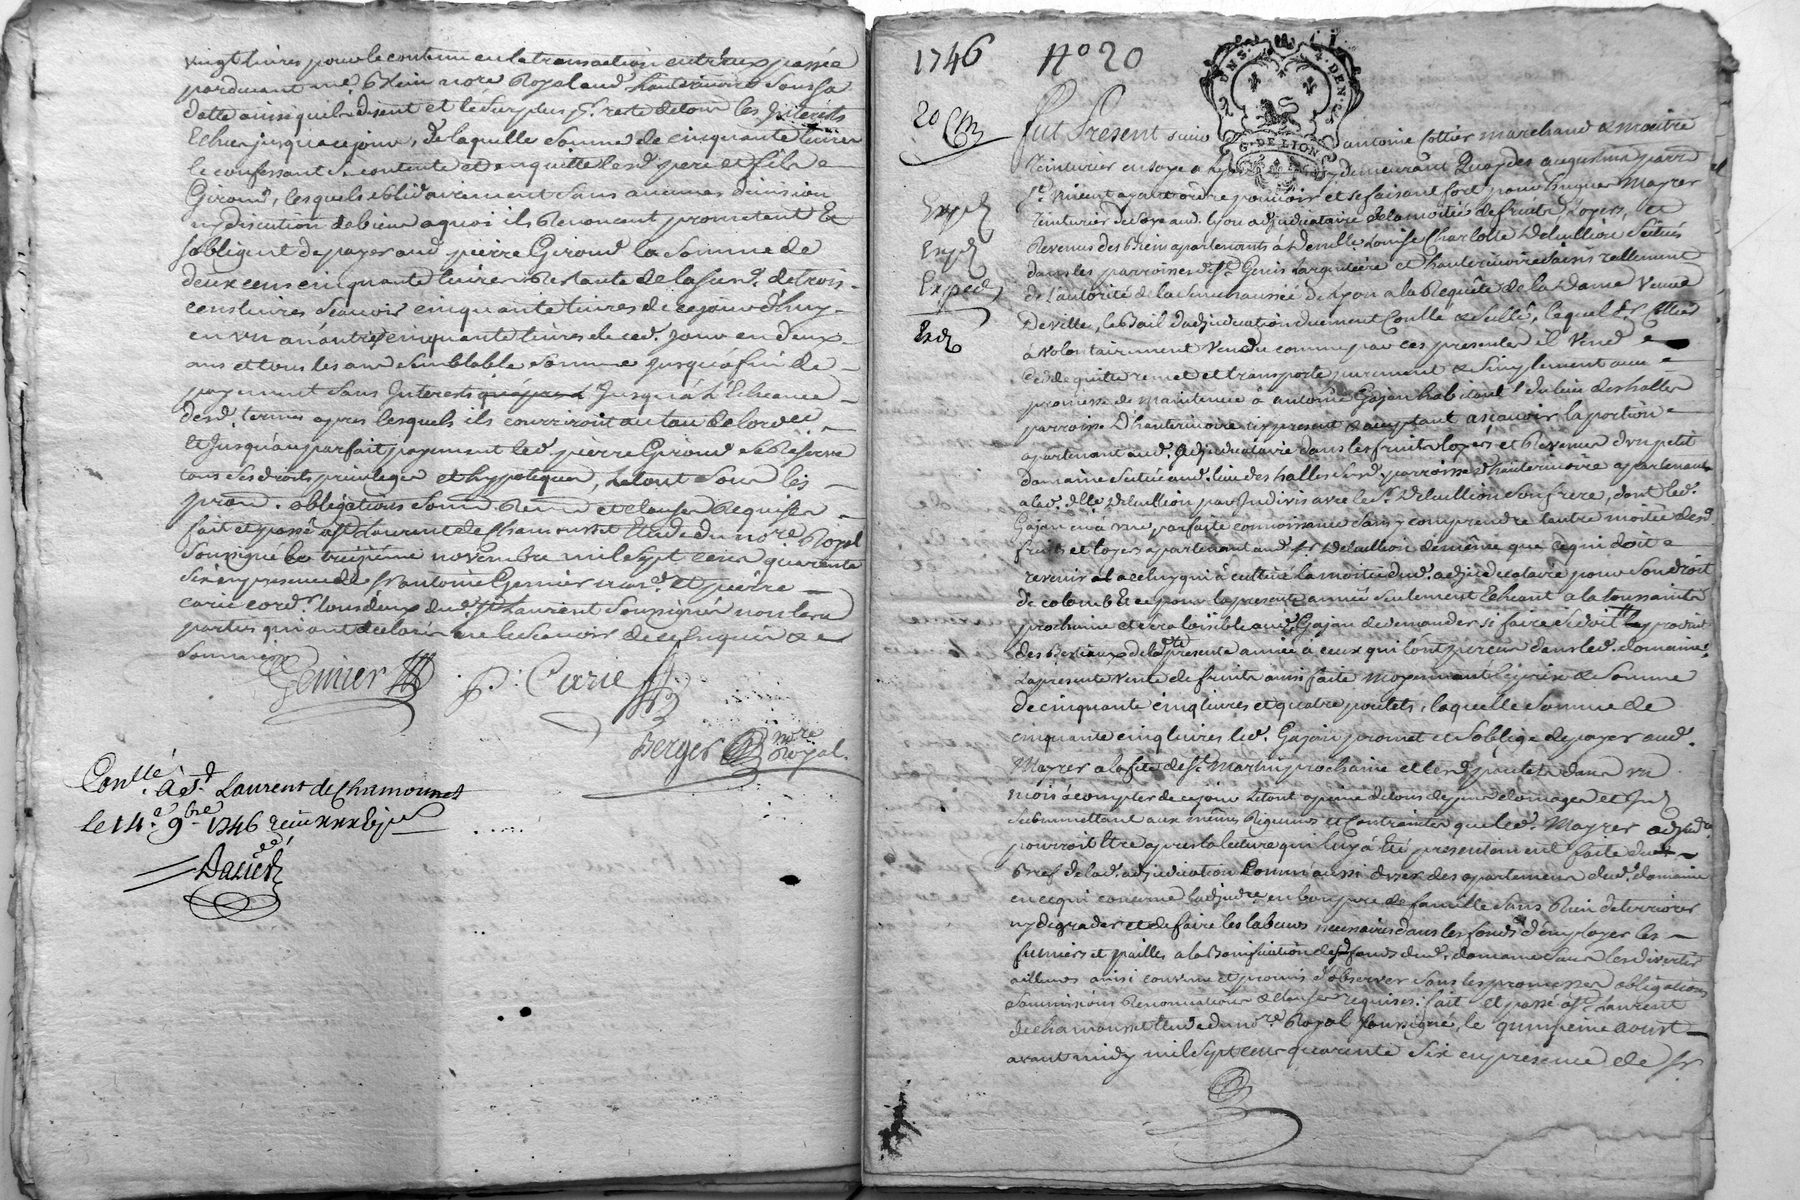 vingt livres pour le contenu en la transaction entr'eux passée
pardevant me. not.re Royal aud. hauterivoire sous sa
datte ainsi quils disent et le surplus pr. reste de tous les Interests
Echeus jusqu'a ce jour, de laquelle somme de cinquante livres
le confessant se contente et en quitte lesd. pere et fils
Giroud, lesquels solidairement sans aucunes division
ny discution de biens a quoi ils Renoncent promettent Et
s'obligent de payer aud. pierre Giroud la somme de
deux cens cinquante livres Restante de lasusd. de trois
cens livres scavoir cinquante livres de ce jourd'huy
en un an autres cinquante livres dicd. jour en deux
ans et tous les ans semblable somme jusqu'a fin de
payement sans Interests Jusqu'a L'Echeance
desd. termes apres lesquels ils courriront au taux de lord.ce
Et Jusqu'au parfait payement led. pierre Giroud se Reserve
tous ses droits privileges et hypoteques, Le tout sous les
prom. obligations soum. Renon. et clauses Requises
fait et passé a St Laurent de Chamousset Etude du no.re Royal
soussigné le treizieme novembre mil sept cens quarente
six en presence de sr antoine Gernier mar.d et pierre
Carie cord.r tous deux dud. St Laurent soussignés non les
parties qui ont declaré ne le scavoir de ce Enquis &
sommairem.t
Gernier P. Carie
Berger no.re Royal
Con.llé A St. Laurent de Chamousset
Le 14.e 9.bre 1746 reçu
Darier
1746 N° 20
20
Fut Present sieur antoine Cottier marchand & maitre
G. DE LION
Teinturier en soye a Lyon y demeurant Quay des augustins parroisse
St. Vincent ayant ordre pouvoir et se faisant fort pour hugues Mayres
Teinturier de soye aud. Lyon adjudicataire de la moitié des fruits Loyers, et
Revenus des biens apartenants a Demlle Louise Charlotte Delullion scitués
dans les parroisses de St. Genis Largentiere et hauterivoire saisis reellement
de l'autorité de la senechaussée de Lyon a la Requête de la Dame Veuve
Deville, le Bail d'adjudication duement Conllé & scellé, lequel sr. Cottier
à volontairement vendu comme par ces presentes il Vend
cede quitte remet et transporte purement & simplement avec
promesse de maintenue à antoine Gajan habitant du lieu des halles
parroisse D'hauterivoire icy present & acceptant a scavoir la portion
apartenant aud. adjudicataire dans les fruits loyers et Revenus d'un petit
domaine scitué aud. lieu des halles susd. parroisse d'hauterivoire apartenant
a lad. dlle. Delullion par Indivis avec le sr. Delullion son frere, dont led.
Gajan en à une parfaite connoissance sans y comprendre l'autre moitié desd.
fruits et loyers apartenant aud. sr. Delullion de même que ce qui doit
revenir a celuy qui à cultivé la moitié dud. adjudicataire pour son droit
de colon Et ce pour la presente année seulement Echeant a la toussaints
prochaine et sera loisible aud. Gajan de demander se faire le produit
des Bestiaux de la presente année a ceux qui l'ont perçeu dans led. domaine.
La presente vente de fruits ainsi faite moyennant le prix & somme
de cinquante cinq livres et quatre poulets, laquelle somme de
cinquante cinq livres led. Gajan promet et s'oblige de payer aud.
Mayres a la fête de St. Martin prochaine et lesd. poulets dans un
mois à compter de ce jour Le tout a peine de tous depens domages et Int.
se soumettant aux mêmes Rigueurs et Contraintes que led. Mayres adjud.re
pourroit Etre apres la lecture qui luy à été presentement faite du
Bref de lad. adjudication Comm' aussi d'user des apartemens dud. domaine
en ce qui concerne ladjud.re en bon pere de famille sans Rien deterriorer
ny degrader et de faire les labeurs necessaires dans les fonds d'employer les
fumiers et pailles a la Bonification desd. fonds dud. domaine sans les divertir
ailleurs ainsi convenu et promis d'observer sous les promesses obligations
soummissions Renonciations & clauses requises. fait et passé a St. Laurent
de chamousset Etude du no.re Royal soussigné, le quinzieme aoust
avant midy mil sept cens quarente six en presence de sr
Exped.
Exped.
Exped.
Exd.